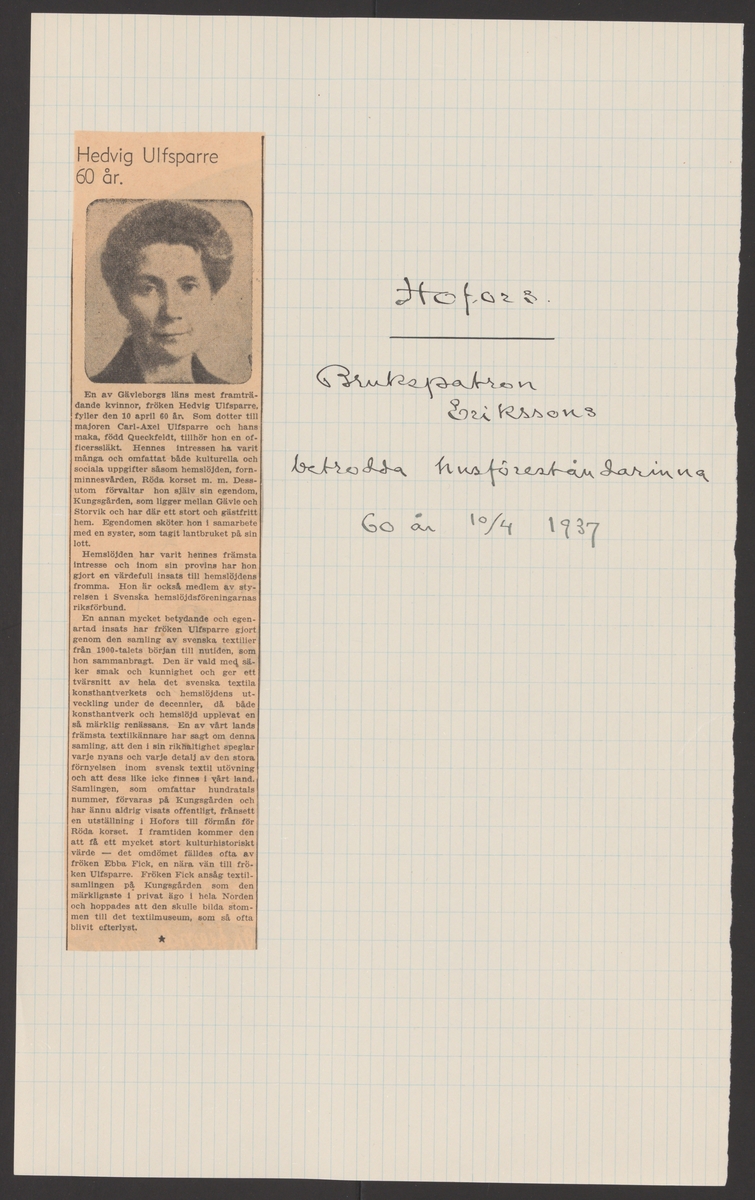 Hedvig Ulfsparre
60 år.
En av Gävleborgs läns mest framträ-
dande kvinnor, fröken Hedvig Ulfsparre,
fyller den 10 april 60 år. Som dotter till
majoren Carl-Axel Ulfsparre och hans
maka, född Queckfeldt, tillhör hon en of-
ficerssläkt. Hennes intressen ha varit
många och omfattat både kulturella och
sociala uppgifter såsom hemslöjden, forn-
minnesvården, Röda korset m. m. Dess-
utom förvaltar hon själv sin egendom,
Kungsgården, som ligger mellan Gävle och
Storvik och har där ett stort och gästfritt
hem. Egendomen sköter hon i samarbete
med en syster, som tagit lantbruket på sin
lott.
Hemslöjden har varit hennes främsta
intresse och inom sin provins har hon
gjort en värdefull insats till hemslöjdens
fromma. Hon är också medlem av sty-
relsen i Svenska hemslöjdsföreningarnas
riksförbund.
En annan mycket betydande och egen-
artad insats har fröken Ulfsparre gjort
genom den samling av svenska textilier
från 1900-talets början till nutiden, som
hon sammanbragt. Den är vald med sä-
ker smak och kunnighet och ger ett
tvärsnitt av hela det svenska textila
konsthantverkets och hemslöjdens ut-
veckling under de decennier, då både
konsthantverk och hemslöjd upplevat en
så märklig renässans. En av vårt lands
främsta textilkännare har sagt om denna
samling, att den i sin rikhaltighet speglar
varje nyans och varje detalj av den stora
förnyelsen inom svensk textil utövning
och att dess like icke finnes i vårt land.
Samlingen, som omfattar hundratals
nummer, förvaras på Kungsgården och
har ännu aldrig visats offentligt, frånsett
en utställning i Hofors till förmån för
Röda korset. I framtiden kommer den
att få ett mycket stort kulturhistoriskt
värde — det omdömet fälldes ofta av
fröken Ebba Fick, en nära vän till frö-
ken Ulfsparre. Fröken Fick ansåg textil-
samlingen på Kungsgården som den
märkligaste i privat ägo i hela Norden
och hoppades att den skulle bilda stom-
men till det textilmuseum, som så ofta
blivit efterlyst.
★
Hofors.
Brukspatron
Erikssons
betrodda husföreståndarinna
60 år 10/4 1937